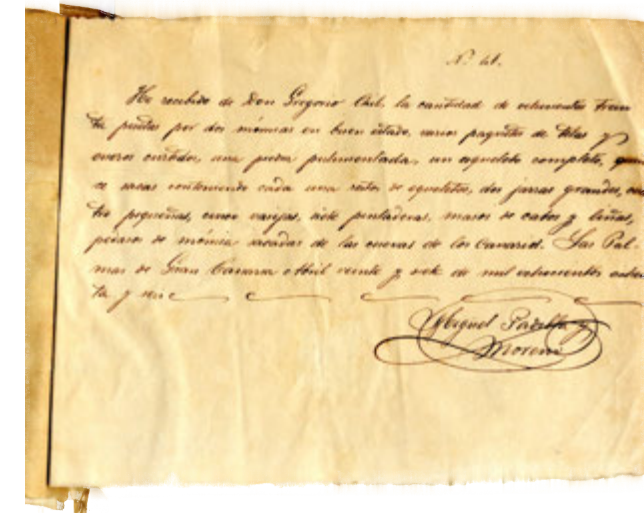 Nº 41.
He recibido de Don Gregorio Chil, la cantidad de ochocientas trein
ta pesetas por dos mómias en buen estado, varios paquetes de telas y
cueros curtidos, una piedra pulimentada, un esqueleto completo,
sacas conteniendo cada una restos de esqueletos, dos jarras grandes, cua
tro pequeñas, cinco vasijas, siete pintaderas, masos de cabos y liñas,
pedasos de mómia sacadas de las cuevas de los Canarios. Las Pal-
mas de Gran Canaria Abril veinte y siete de mil ochocientos ochen
ta y seis
Miguel Padilla y
Moreno